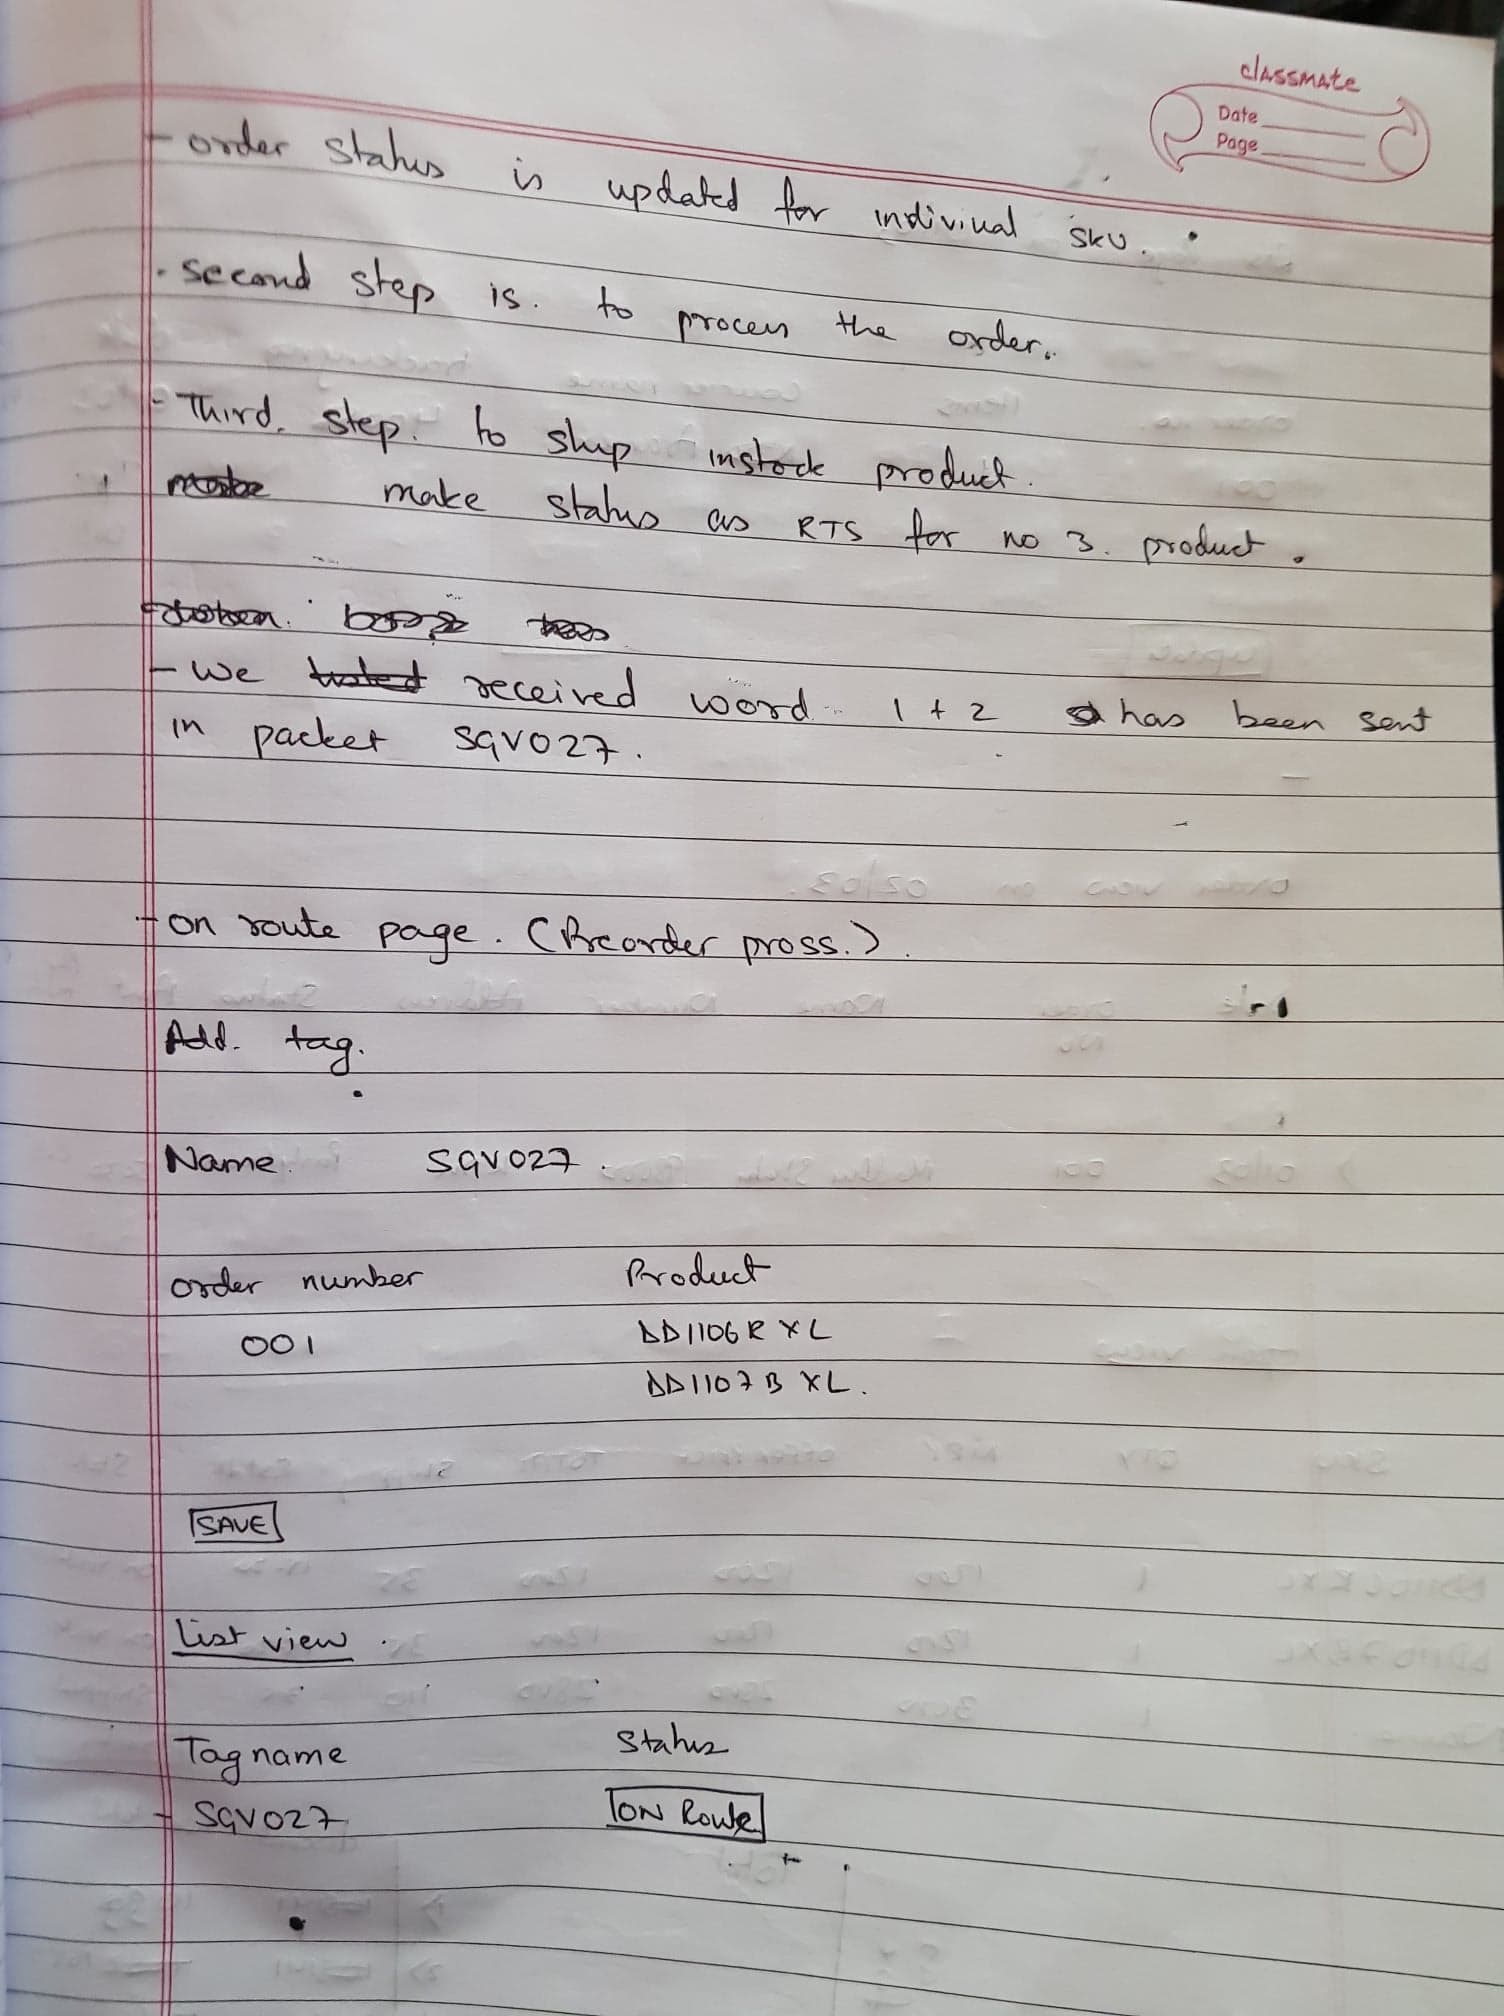 classmate
Date
Page
- order status is updated for indiviual SKU.
. second step is. to process the order.
- Third. step. to ship instock product.
make status as RTS for no 3. product.
- we received word 1 + 2 has been sent
in packet SGV027.
- on route page. (Preorder pross.).
Add. tag.
Name. SGV027.
order number Product
001 DD1106R XL
DD1107B XL.
SAVE
List view.
Tag name Status
- SGV027 ON Route